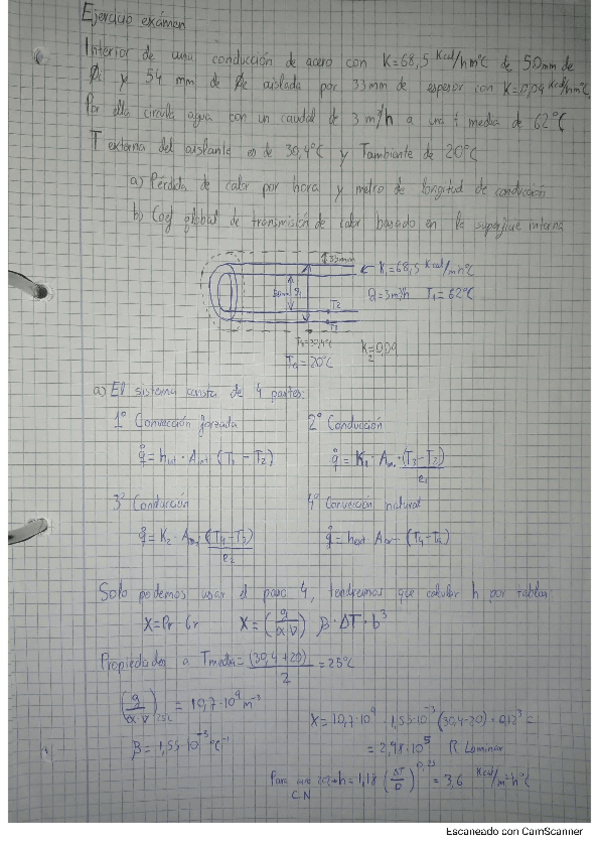 Ejercicio exámen
Interior de una conducción de acero con K=68,5 Kcal/hmºC de 50mm de
Øi y 54 mm de Øe aislada por 33mm de espesor con K=0,04 Kcal/hmºC.
Por ella circula agua con un caudal de 3 m³/h a una t media de 62ºC
T externa del aislante es de 30,4ºC y Tambiante de 20ºC
a) Pérdida de calor por hora y metro de longitud de conducción
b) Coef global de transmisión de calor basado en la superficie interna
33mm
K=68,5 Kcal/mhºC
Q=3m³/h T₁=62ºC
T₂
T₃
T₄=30,4ºC
T∞=20ºC
a) El sistema consta de 4 partes:
1º Convección forzada 2º Conducción
q̇=hint · Aint (T₁-T₂) q̇=K₁·Am·(T₃-T₂)/e₁
3º Conducción 4º Convección natural
q̇=K₂·Am₂(T₄-T₃)/e₂ q̇=hext Aext (T₄-T∞)
Solo podemos usar el paso 4, tendremos que calcular h por tablas
X=Pr·Gr X=(g/α·ν) β·ΔT·b³
Propiedades a Tmedia=(30,4+20)/2=25ºC
(g/α·ν)25ºC = 10,7·10⁹ m⁻³
X=10,7·10⁹·1,55·10⁻³(30,4-20)·0,12³=
β=1,55·10⁻³ºC⁻¹
=2,98·10⁵ R Laminar
h=1,18(ΔT/D)^0,25=3,6 Kcal/m²hºC
C N
Escaneado con CamScanner